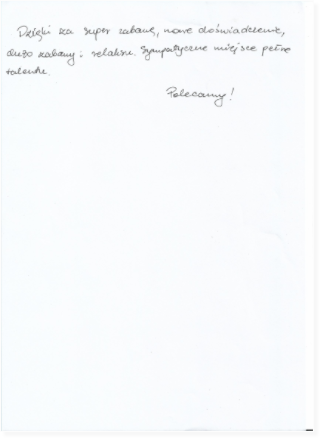 Dzięki za super zabawę, nowe doświadczenie,
dużo zabawy i relaksu. Sympatyczne miejsce pełne
talentu.
Polecamy!